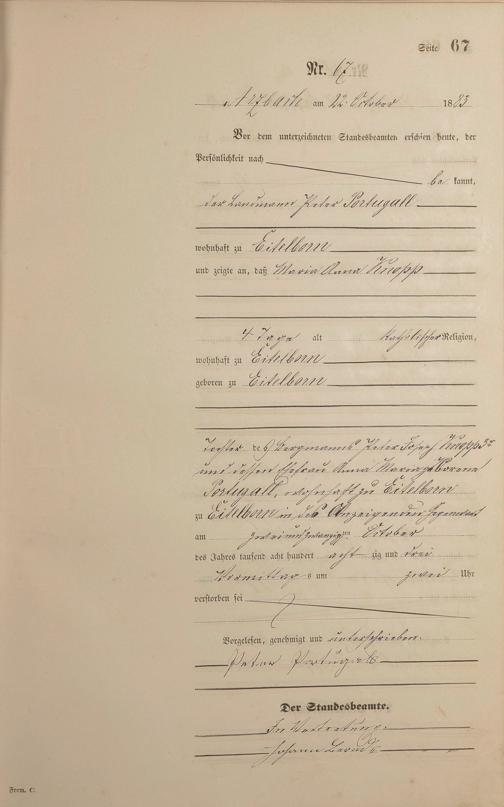 Seite 67
Nr. 67
Arzbach am 22. October 1883
Vor dem unterzeichneten Standesbeamten erschien heute, der
Persönlichkeit nach
be kannt,
der Landmann Peter Portugall
wohnhaft zu Eitelborn
und zeigte an, daß Maria Anna Knopp
4 Tage alt katholischer Religion,
wohnhaft zu Eitelborn
geboren zu Eitelborn
Tochter des Bergmanns Peter Josef Knopp 3r
und dessen Ehefrau Anna Maria geborene
Portugall, wohnhaft zu Eitelborn
zu Eitelborn in des Anzeigenden Gegenwart
am zweiundzwanzigten October
des Jahres tausend acht hundert acht zig und drei
Vormittag s um zwei Uhr
verstorben sei
Vorgelesen, genehmigt und unterschrieben.
Peter Portugall
Der Standesbeamte.
In Vertretung.
Johann
Form. C.